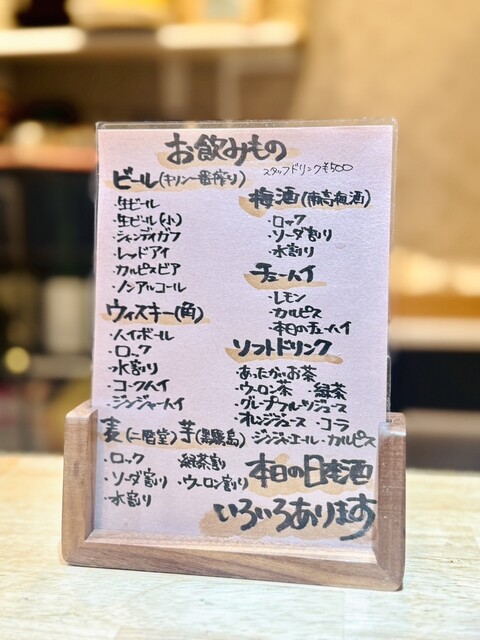 お飲みもの
スタッフドリンク¥500
ビール(キリン一番搾り)
・生ビール
・生ビール(小)
・シャンディガフ
・レッドアイ
・カルピスビア
・ノンアルコール
ウィスキー(角)
・ハイボール
・ロック
・水割り
・コークハイ
・ジンジャーハイ
麦(二階堂) 芋(黒霧島)
・ロック 緑茶割り
・ソーダ割り ・ウーロン割り
・水割り
梅酒(南高梅酒)
・ロック
・ソーダ割り
・水割り
チューハイ
・レモン
・カルピス
・本日のチューハイ
ソフトドリンク
あったかいお茶
・ウーロン茶 ・緑茶
・グレープフルーツジュース
・オレンジジュース ・コーラ
ジンジャーエール・カルピス
本日の日本酒
いろいろあります